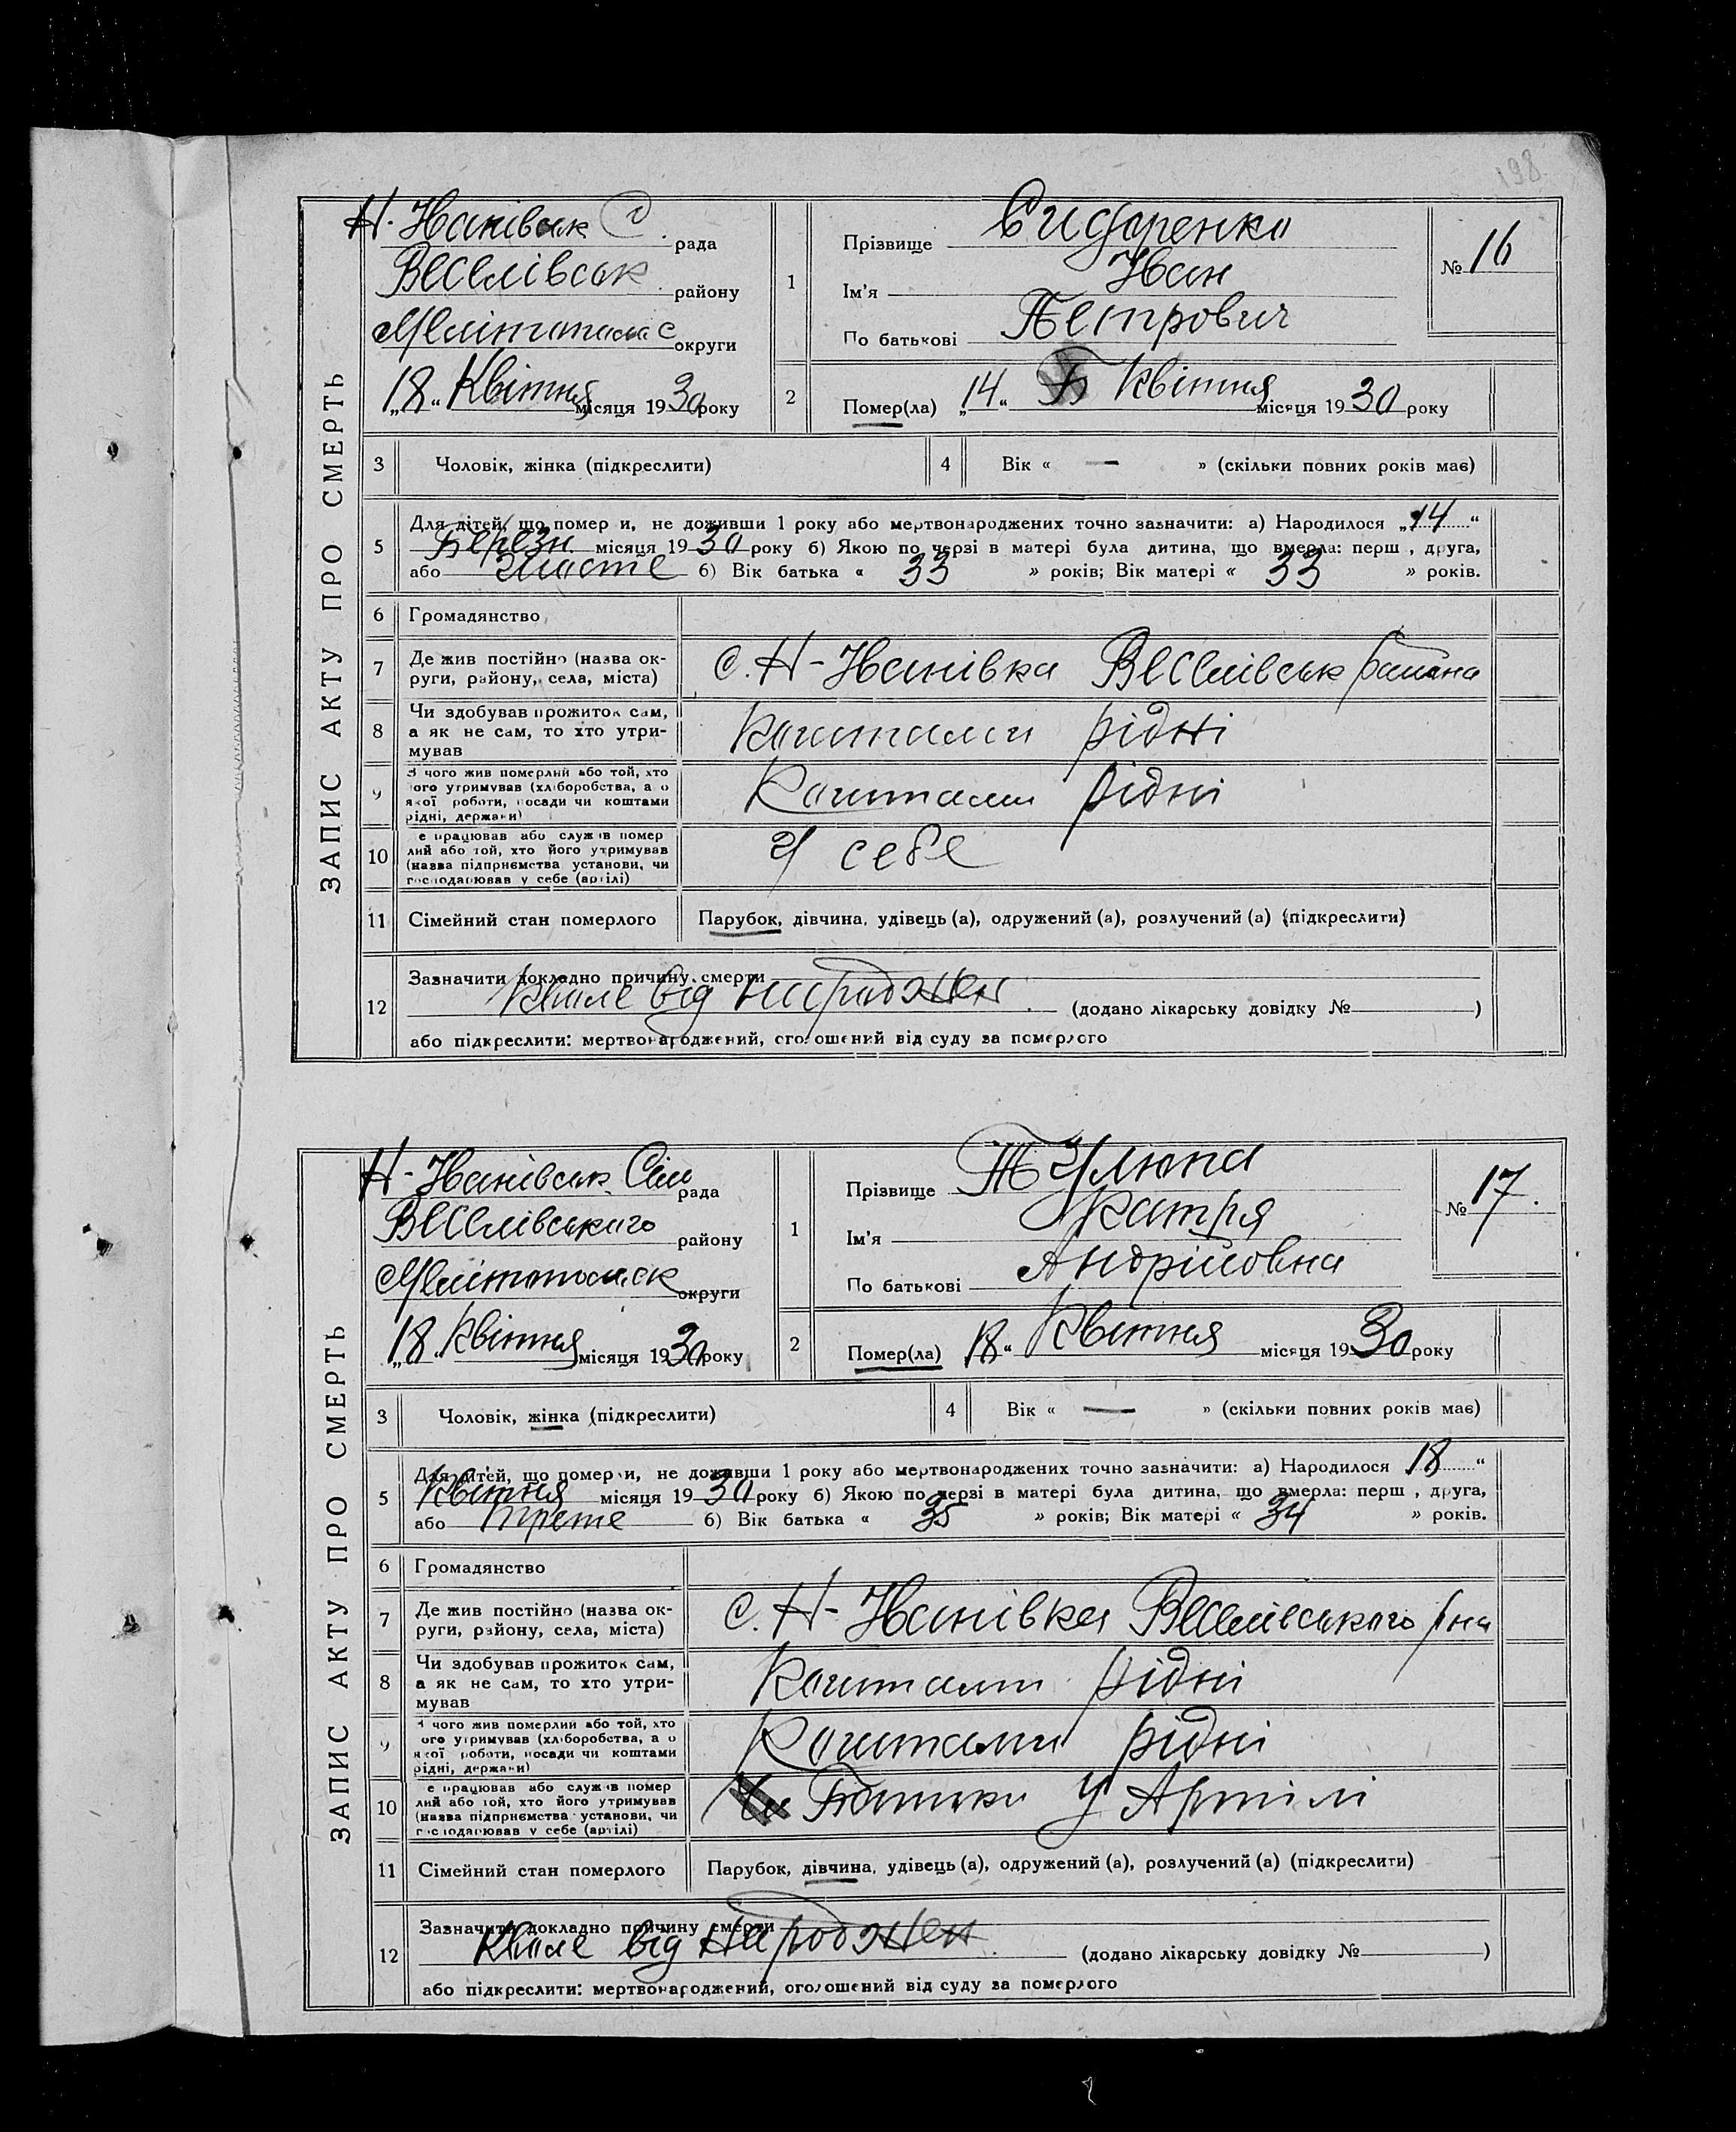 198
ЗАПИС АКТУ ПРО СМЕРТЬ
Н-Нанівськ С рада
Веселівськ району
Мелітопольс округи
„18“ Квітня місяця 1930 року
1
Прізвище Сидоренко
Ім'я Іван
По батькові Петрович
№ 16
2
Помер(ла) „14“ Квітня місяця 1930 року
3 Чоловік, жінка (підкреслити)
4 Вік « — » (скільки повних років має)
5 Для дітей, що померли, не доживши 1 року або мертвонароджених точно зазначити: а) Народилося „14“
Березн. місяця 1930 року б) Якою по черзі в матері була дитина, що вмерла: перш , друга,
або шосте б) Вік батька « 33 » років; Вік матері « 33 » років.
6 Громадянство
7 Де жив постійно (назва ок-
руги, району, села, міста)
с. Н-Іванівка Веселівськ района
8 Чи здобував прожиток сам,
а як не сам, то хто утри-
мував
Коштами рідні
9 З чого жив померлий або той, хто
ого утримував (хліборобства, а о
якої роботи, посади чи коштами
рідні, держави)
Коштами рідні
10 е працював або служив помер
лий або той, хто його утримував
(назва підприємства установи, чи
господарював у себе (артілі)
У себе
11 Сімейний стан померлого
Парубок, дівчина, удівець (а), одружений (а), розлучений (а) (підкреслити)
12 Зазначити докладно причину смерти
Кволе від народжен. (додано лікарську довідку № )
або підкреслити: мертвонароджений, оголошений від суду за померлого
ЗАПИС АКТУ ПРО СМЕРТЬ
Н-Іванівськ Сіль рада
Веселівського району
Мелітопольск округи
„18“ Квітня місяця 1930 року
1
Прізвище Тулюпа
Ім'я Катря
По батькові Андрійовна
№ 17.
2
Помер(ла) 18“ Квітня місяця 1930 року
3 Чоловік, жінка (підкреслити)
4 Вік « — » (скільки повних років має)
5 Для дітей, що померли, не доживши 1 року або мертвонароджених точно зазначити: а) Народилося 18“
Квітня місяця 1930 року б) Якою по черзі в матері була дитина, що вмерла: перш , друга,
або трете б) Вік батька « 35 » років; Вік матері « 34 » років.
6 Громадянство
7 Де жив постійно (назва ок-
руги, району, села, міста)
с. Н-Іванівка Веселівського рна
8 Чи здобував прожиток сам,
а як не сам, то хто утри-
мував
Коштами рідні
9 З чого жив померлий або той, хто
ого утримував (хліборобства, а о
якої роботи, посади чи коштами
рідні, держави)
Коштами рідні
10 е працював або служив помер
лий або той, хто його утримував
(назва підприємства установи, чи
господарював у себе (артілі)
Батьки у Артілі
11 Сімейний стан померлого
Парубок, дівчина, удівець (а), одружений (а), розлучений (а) (підкреслити)
12 Зазначити докладно причину смерти
Кволе від народжен. (додано лікарську довідку № )
або підкреслити: мертвонароджений, оголошений від суду за померлого